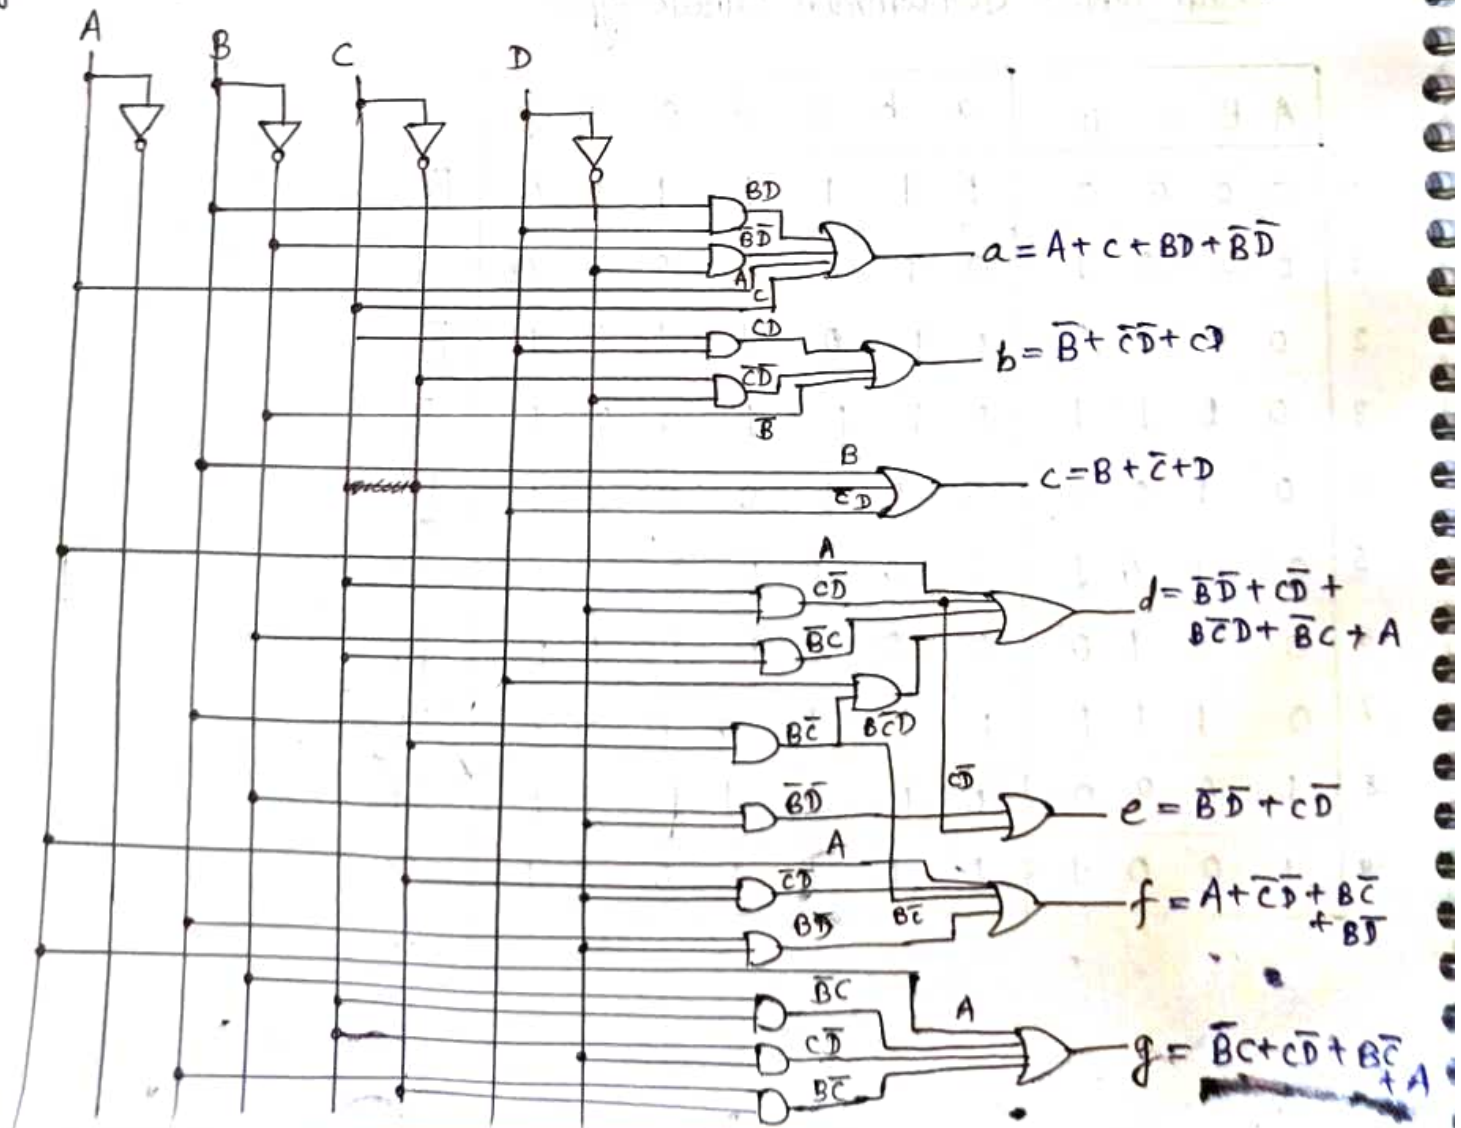 A B C D
BD
B̅D̅
A
C
a = A + C + BD + B̅D̅
CD
C̅D̅
B̅
b = B̅ + C̅D̅ + CD
B
C̅ D
c = B + C̅ + D
A
CD̅
B̅C
BC̅D
d = B̅D̅ + CD̅ +
BC̅D + B̅C + A
BC̅
B̅D̅
CD̅
e = B̅D̅ + CD̅
A
C̅D̅
BC̅
BD̅
f = A + C̅D̅ + BC̅
+ BD̅
B̅C
A
CD̅
BC̅
g = B̅C + CD̅ + BC̅
+ A